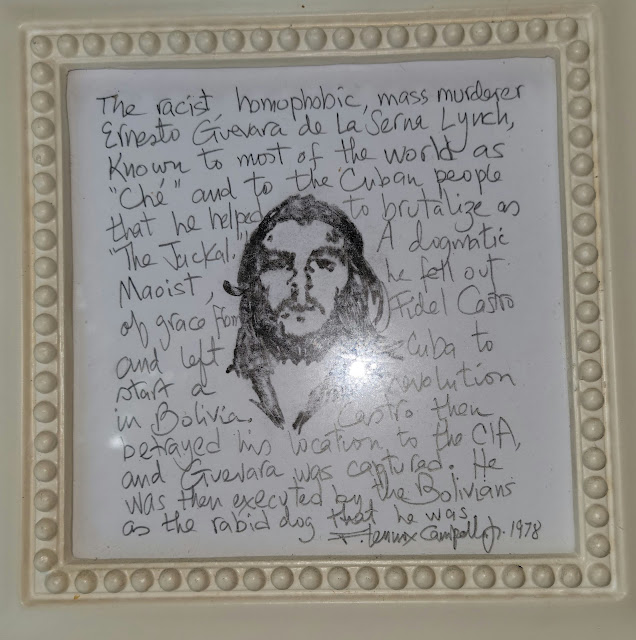 The racist, homophobic, mass murderer
Ernesto Guevara de La Serna Lynch,
Known to most of the world as
"Ché" and to the Cuban people
that he helped to brutalize as
"The Jackal." A dogmatic
Maoist, he fell out
of grace from Fidel Castro
and left Cuba to
start a revolution
in Bolivia. Castro then
betrayed his location to the CIA,
and Guevara was captured. He
was then executed by the Bolivians
as the rabid dog that he was.
Campbell Jr. 1978